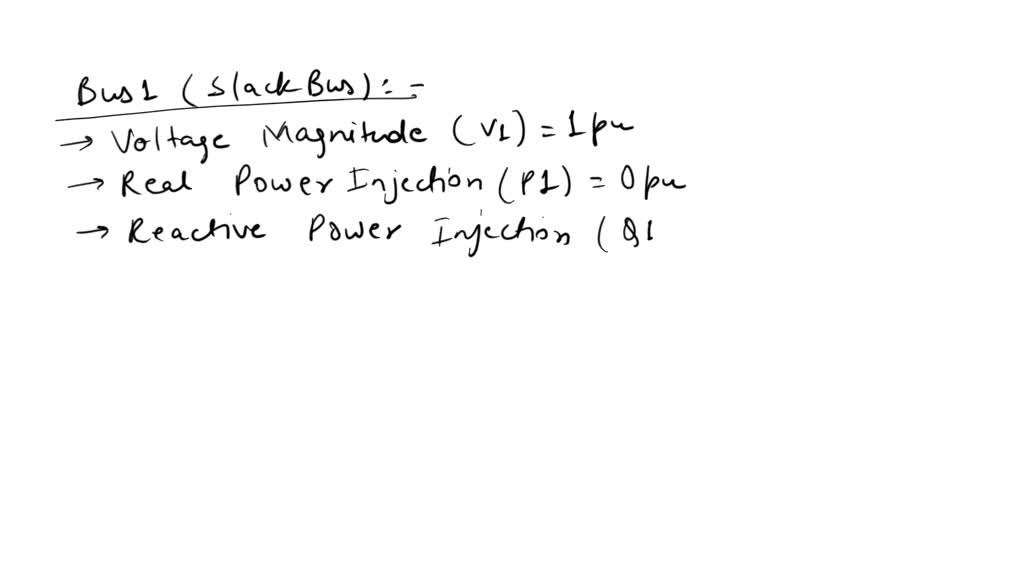 Bus1 (SlackBus): -
→ Voltage Magnitude (V1) = 1pu
→ Real Power Injection (P1) = 0pu
→ Reactive Power Injection (Q1